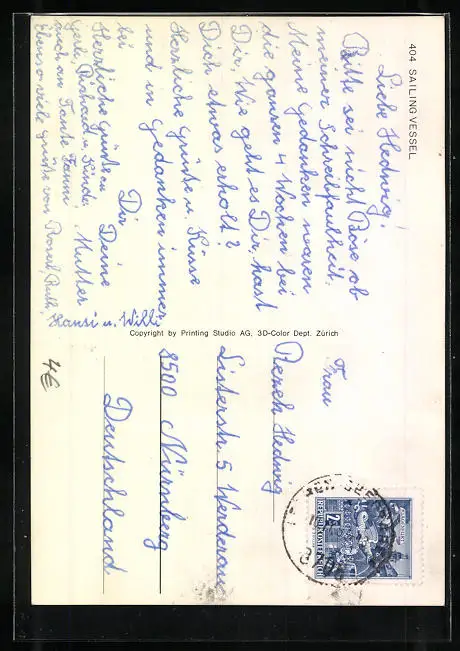 404 SAILING VESSEL
Liebe Hedwig!
Bitte sei nicht Böse ob
meiner Schreibfaulheit.
Meine Gedanken waren
die ganzen 4 Wochen bei
Dir, Wie geht es Dir, hast
Dich etwas erholt?
Herzliche Grüße u. Küsse
und in Gedanken immer
bei Dir
Deine
Mutter
Herzliche Grüße an
Gerh, Richard u. Kinder,
auch an Tante Fanni
Ebenso viele Grüße von Roserl, Ruth,
Hansi u. Willi
Copyright by Printing Studio AG, 3D-Color Dept. Zürich
Frau
Resch Hedwig
Listerstr. 5 Werderau
8500 Nürnberg
Deutschland
REPUBLIK ÖSTERREICH
4€